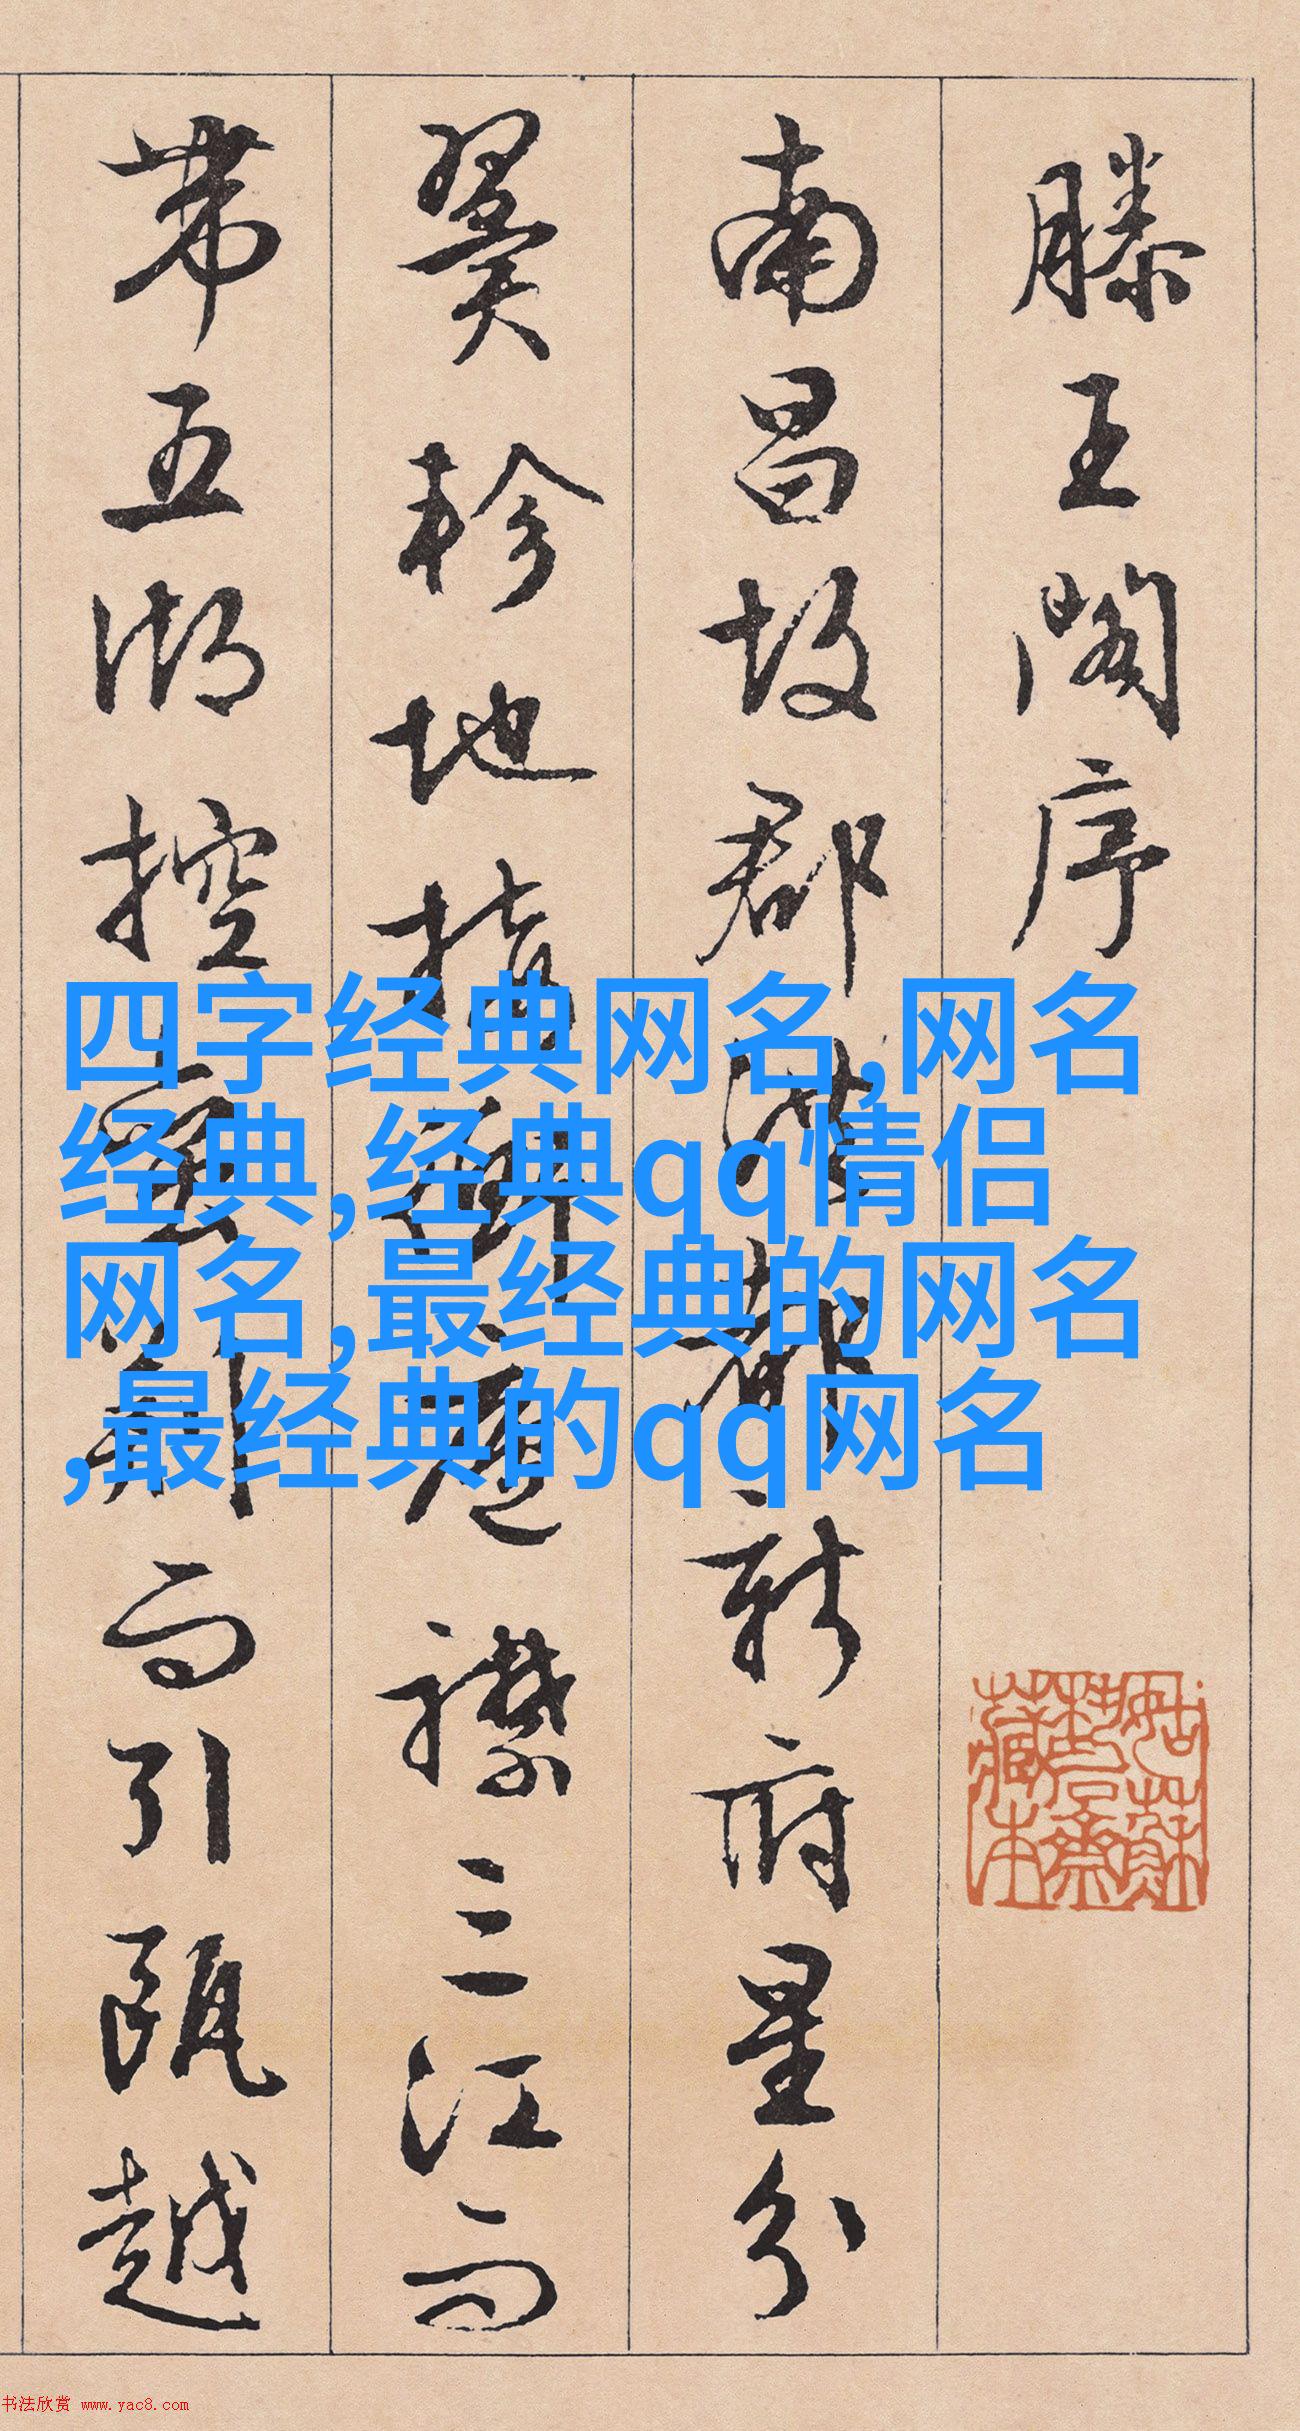 滕王閣序
南昌故郡洪都新府星分
翼軫地接衡廬襟三江而
帶五湖控蠻荆而引甌越
四字经典网名,网名
经典,经典qq情侣
网名,最经典的网名
,最经典的qq网名
姑蘇
藏本
书法欣赏 www.yac8.com